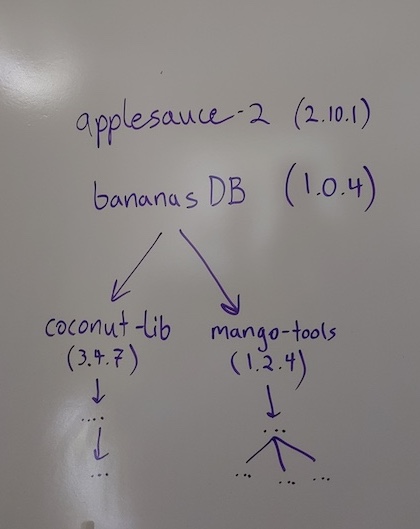 applesauce-2 (2.10.1)
bananas DB (1.0.4)
coconut-lib mango-tools
(3.4.7) (1.2.4)
.... ...
... ... ... ...